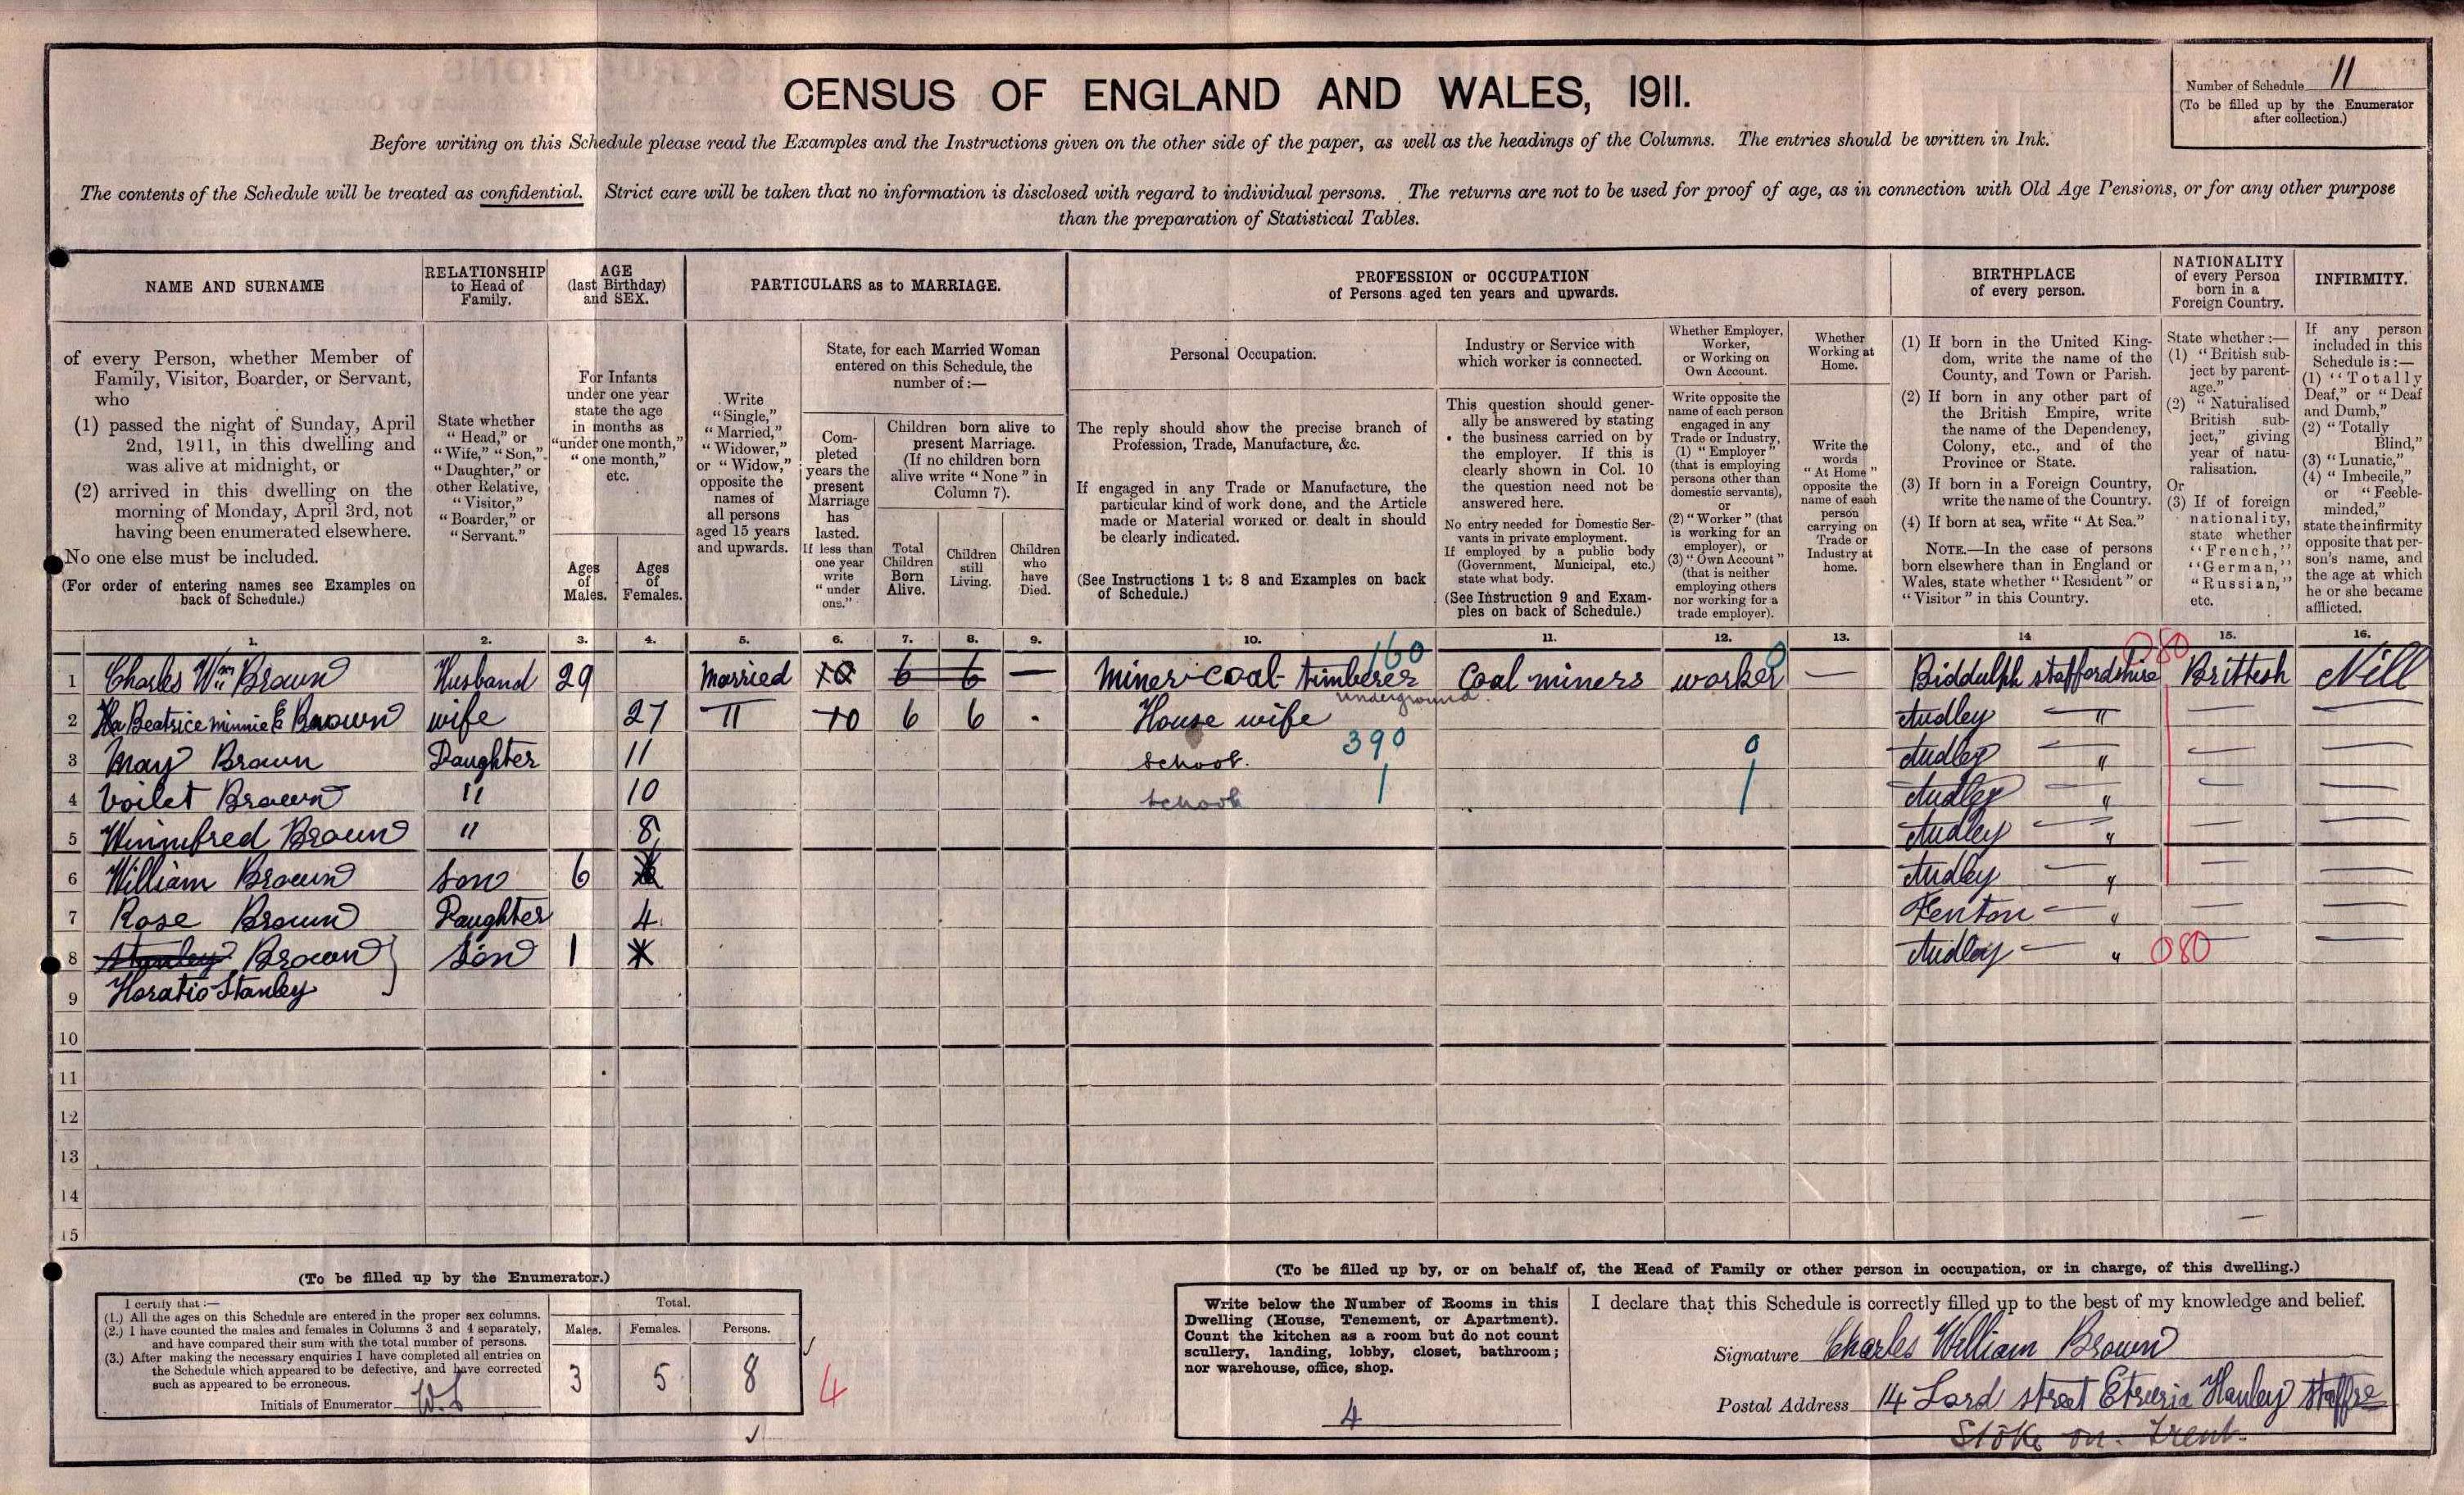 CENSUS OF ENGLAND AND WALES, 1911.
Number of Schedule 11
(To be filled up by the Enumerator
after collection.)
Before writing on this Schedule please read the Examples and the Instructions given on the other side of the paper, as well as the headings of the Columns. The entries should be written in Ink.
The contents of the Schedule will be treated as confidential. Strict care will be taken that no information is disclosed with regard to individual persons. The returns are not to be used for proof of age, as in connection with Old Age Pensions, or for any other purpose
than the preparation of Statistical Tables.
NAME AND SURNAME
of every Person, whether Member of
Family, Visitor, Boarder, or Servant,
who
(1) passed the night of Sunday, April
2nd, 1911, in this dwelling and
was alive at midnight, or
(2) arrived in this dwelling on the
morning of Monday, April 3rd, not
having been enumerated elsewhere.
No one else must be included.
(For order of entering names see Examples on
back of Schedule.)
RELATIONSHIP
to Head of
Family.
State whether
"Head," or
"Wife," "Son,"
"Daughter," or
other Relative,
"Visitor,"
"Boarder," or
"Servant."
AGE
(last Birthday)
and SEX.
For Infants
under one year
state the age
in months as
"under one month,"
"one month,"
etc.
Ages
of
Males.
Ages
of
Females.
PARTICULARS as to MARRIAGE.
Write
"Single,"
"Married,"
"Widower,"
or "Widow,"
opposite the
names of
all persons
aged 15 years
and upwards.
State, for each Married Woman
entered on this Schedule, the
number of:—
Com-
pleted
years the
present
Marriage
has
lasted.
If less than
one year
write
"under
one."
Children born alive to
present Marriage.
(If no children born
alive write "None" in
Column 7).
Total
Children
Born
Alive.
Children
still
Living.
Children
who
have
Died.
PROFESSION or OCCUPATION
of Persons aged ten years and upwards.
Personal Occupation.
The reply should show the precise branch of
Profession, Trade, Manufacture, &c.
If engaged in any Trade or Manufacture, the
particular kind of work done, and the Article
made or Material worked or dealt in should
be clearly indicated.
(See Instructions 1 to 8 and Examples on back
of Schedule.)
Industry or Service with
which worker is connected.
This question should gener-
ally be answered by stating
the business carried on by
the employer. If this is
clearly shown in Col. 10
the question need not be
answered here.
No entry needed for Domestic Ser-
vants in private employment.
If employed by a public body
(Government, Municipal, etc.)
state what body.
(See Instruction 9 and Exam-
ples on back of Schedule.)
Whether Employer,
Worker,
or Working on
Own Account.
Write opposite the
name of each person
engaged in any
Trade or Industry,
(1) "Employer"
(that is employing
persons other than
domestic servants),
or
(2) "Worker" (that
is working for an
employer), or
(3) "Own Account"
(that is neither
employing others
nor working for a
trade employer).
Whether
Working at
Home.
Write the
words
"At Home"
opposite the
name of each
person
carrying on
Trade or
Industry at
home.
BIRTHPLACE
of every person.
(1) If born in the United King-
dom, write the name of the
County, and Town or Parish.
(2) If born in any other part of
the British Empire, write
the name of the Dependency,
Colony, etc., and of the
Province or State.
(3) If born in a Foreign Country,
write the name of the Country.
(4) If born at sea, write "At Sea."
NOTE.—In the case of persons
born elsewhere than in England or
Wales, state whether "Resident" or
"Visitor" in this Country.
NATIONALITY
of every Person
born in a
Foreign Country.
State whether:—
(1) "British sub-
ject by parent-
age."
(2) "Naturalised
British sub-
ject," giving
year of natu-
ralisation.
Or
(3) If of foreign
nationality,
state whether
"French,"
"German,"
"Russian,"
etc.
INFIRMITY.
If any person
included in this
Schedule is:—
(1) "Totally
Deaf," or "Deaf
and Dumb,"
(2) "Totally
Blind,"
(3) "Lunatic,"
(4) "Imbecile,"
or "Feeble-
minded,"
state the infirmity
opposite that per-
son's name, and
the age at which
he or she became
afflicted.
1. 2. 3. 4. 5. 6. 7. 8. 9. 10. 11. 12. 13. 14 15. 16.
1 Charles Wm Brown Husband 29 Married 10 6 6 — Miner-coal-timberer 160 Coal miners worker 0 — Biddulph Staffordshire 080 Brittesh Nill
underground
2 Beatrice Minnie E Brown wife 27 " 10 6 6 House wife Audley — "
3 May Brown Daughter 11 school. 390 0 Audley — "
4 Voilet Brown " 10 school Audley — "
5 Winnifred Brown " 8 Audley — "
6 William Brown son 6 Audley — "
7 Rose Brown Daughter 4 Fenton — "
8 Stanley Brown son 1 Audley — " 080
9 Horatio Stanley
10
11
12
13
14
15
(To be filled up by the Enumerator.)
I certify that:—
(1.) All the ages on this Schedule are entered in the proper sex columns.
(2.) I have counted the males and females in Columns 3 and 4 separately,
and have compared their sum with the total number of persons.
(3.) After making the necessary enquiries I have completed all entries on
the Schedule which appeared to be defective, and have corrected
such as appeared to be erroneous.
Initials of Enumerator
Total.
Males. Females. Persons.
3 5 8 4
(To be filled up by, or on behalf of, the Head of Family or other person in occupation, or in charge, of this dwelling.)
Write below the Number of Rooms in this
Dwelling (House, Tenement, or Apartment).
Count the kitchen as a room but do not count
scullery, landing, lobby, closet, bathroom;
nor warehouse, office, shop.
4
I declare that this Schedule is correctly filled up to the best of my knowledge and belief.
Signature Charles William Brown
Postal Address 14 Lord street Etruria Hanley Staffre
Stoke on. Trent.